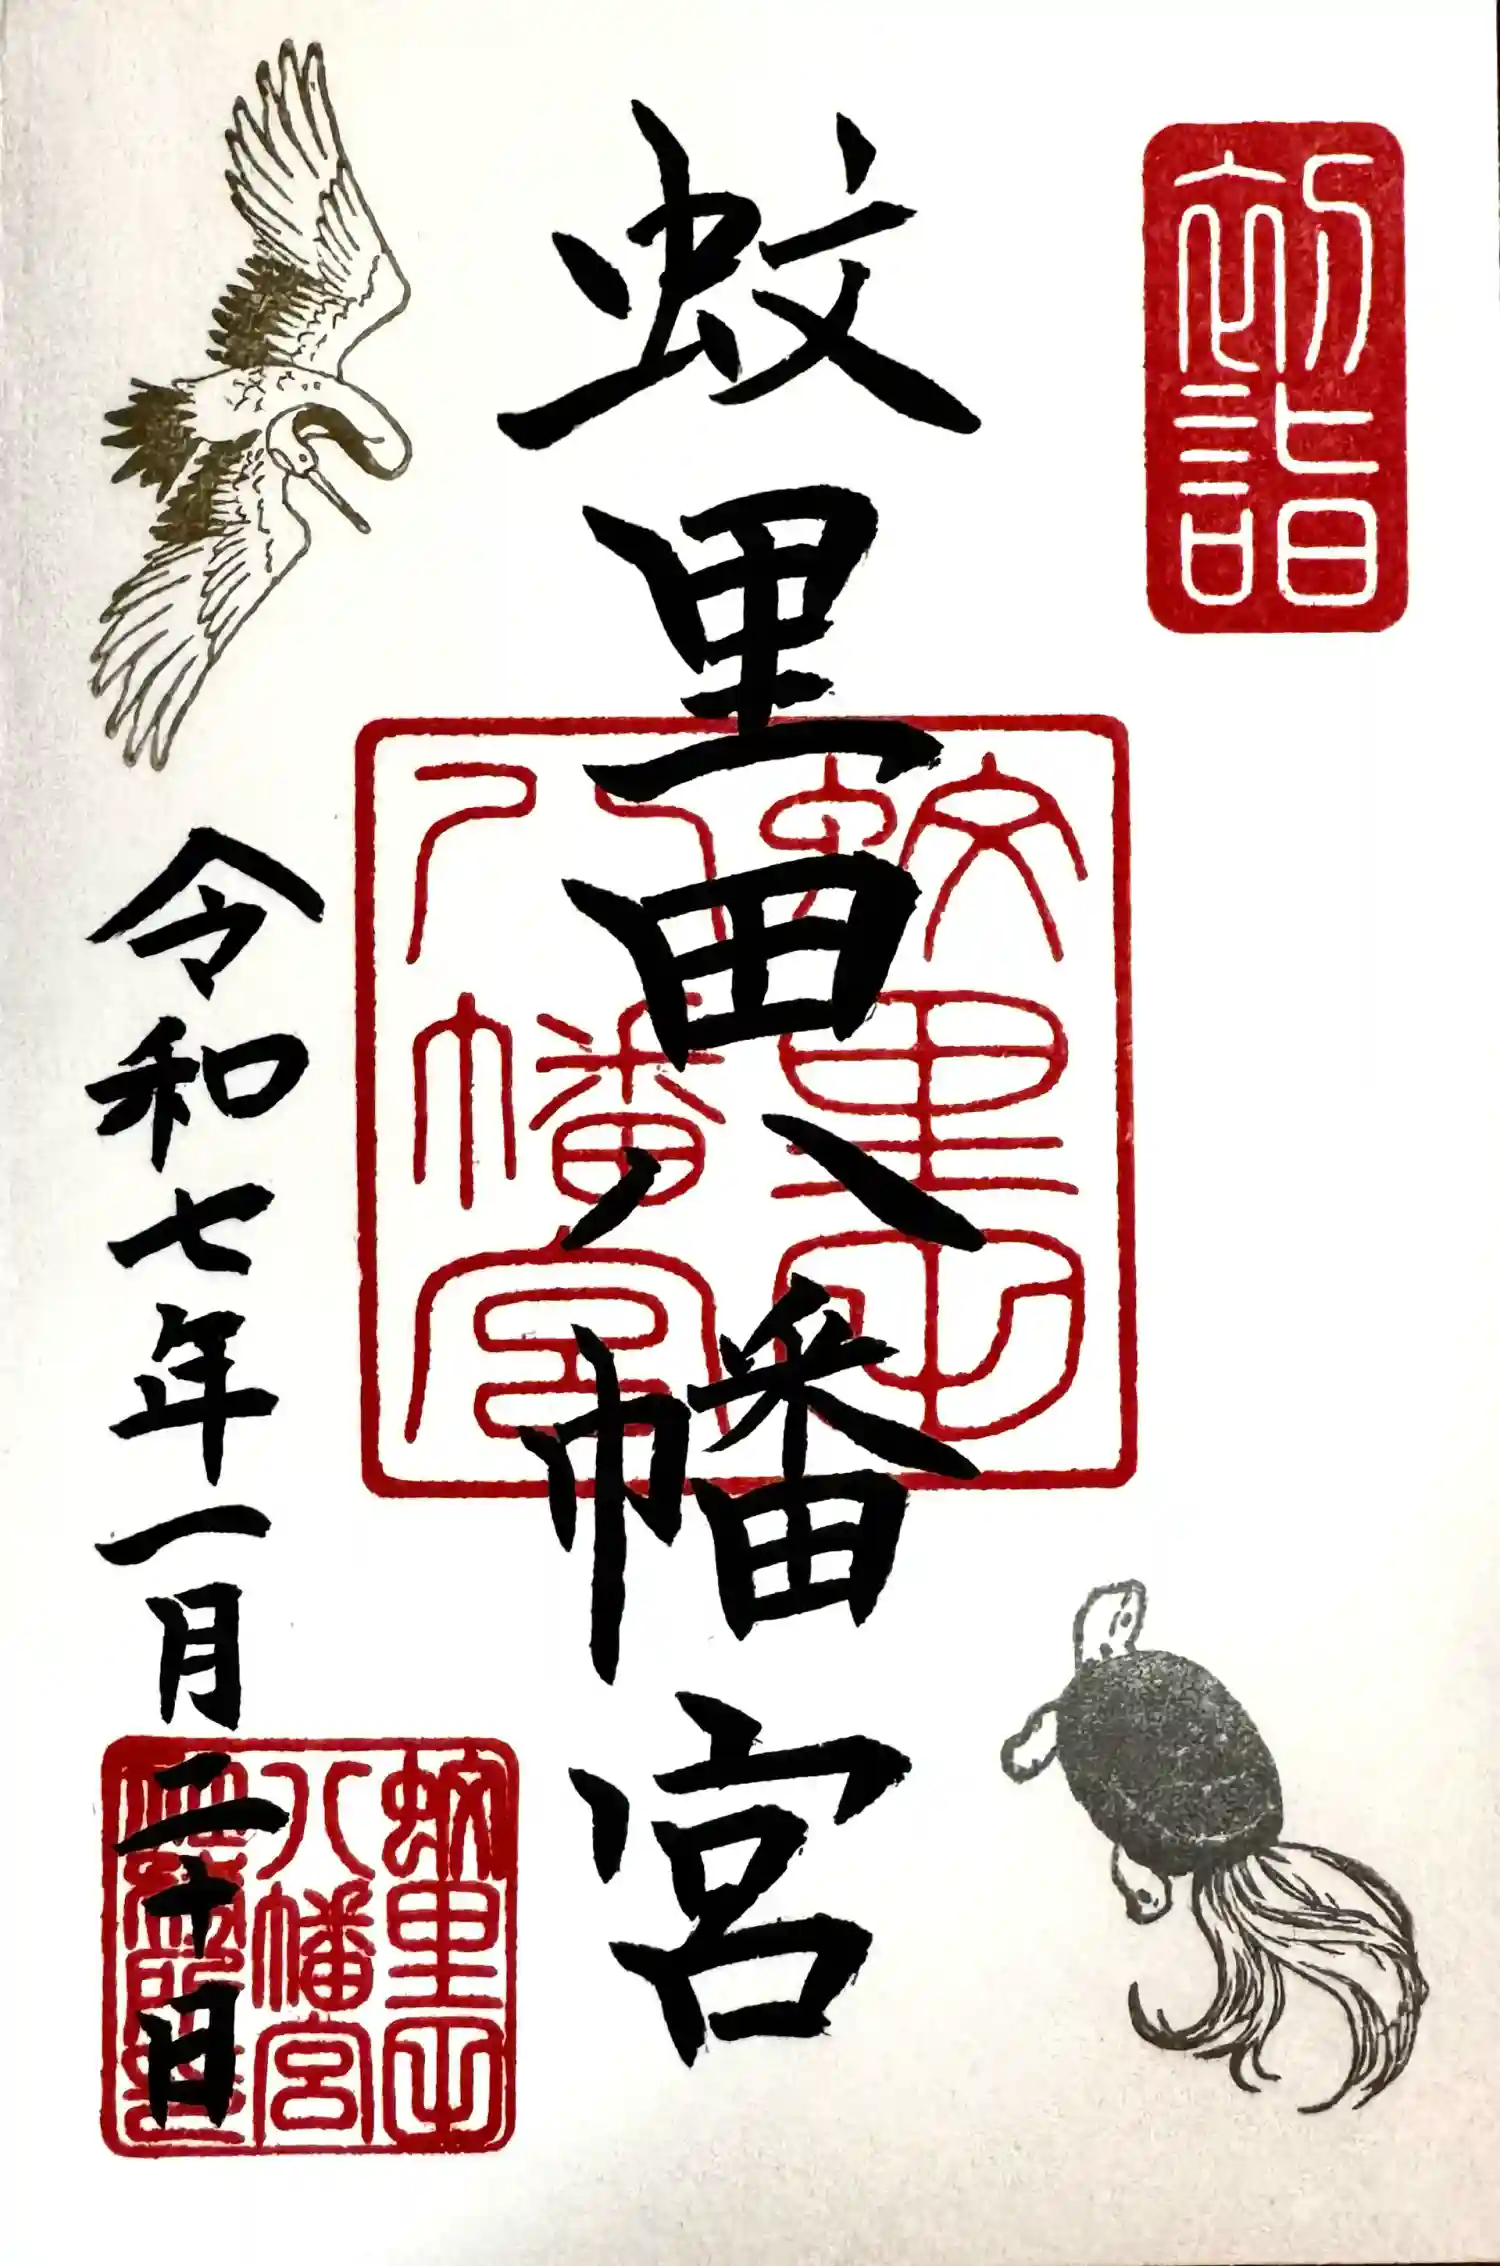 初詣
蚊里田八幡宮
蚊里田
八幡宮
令和七年一月二十日
蚊里田
八幡宮